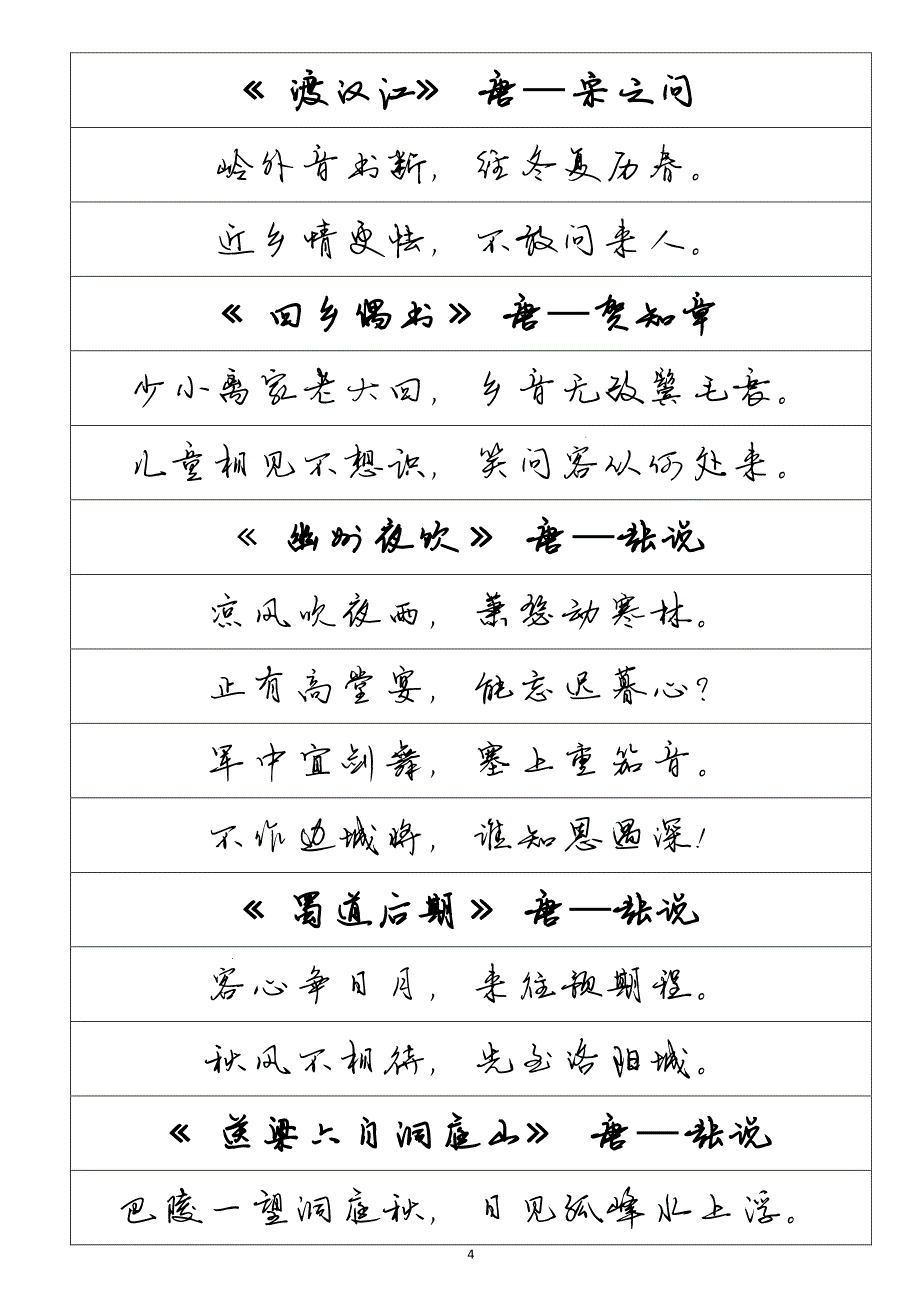 《 渡汉江》 唐—宋之问
岭外音书断, 经冬复历春。
近乡情更怯, 不敢问来人。
《 回乡偶书》 唐—贺知章
少小离家老大回, 乡音无改鬓毛衰。
儿童相见不想识, 笑问客从何处来。
《 幽州夜饮》 唐—张说
凉风吹夜雨, 萧瑟动寒林。
正有高堂宴, 能忘迟暮心?
军中宜剑舞, 塞上重笳音。
不作边城将, 谁知恩遇深!
《 蜀道后期》 唐—张说
客心争日月, 来往预期程。
秋风不相待, 先至洛阳城。
《 送梁六自洞庭山》 唐—张说
巴陵一望洞庭秋, 日见孤峰水上浮。
4